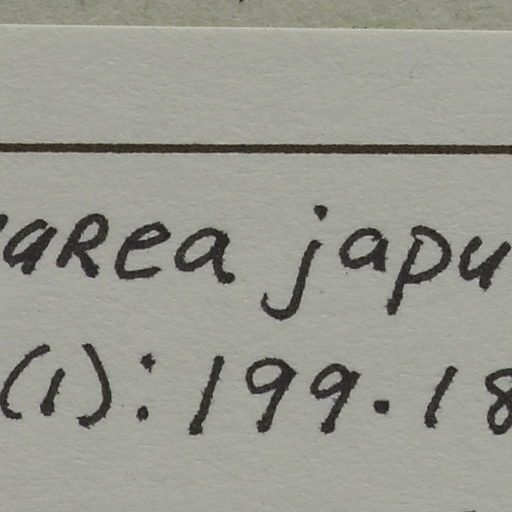 area japu
(1): 199. 18